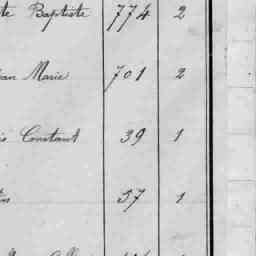 Baptiste 774 2
Marie 701 2
Constant 39 1
57 1